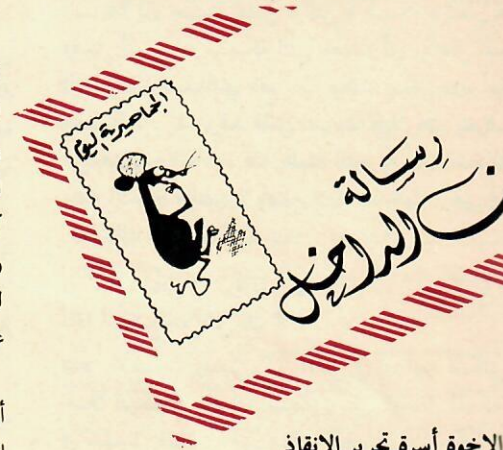 الجماهيرية الليبية
رسالة
من الداخل
الاخوة أسرة تحرير الانقاذ